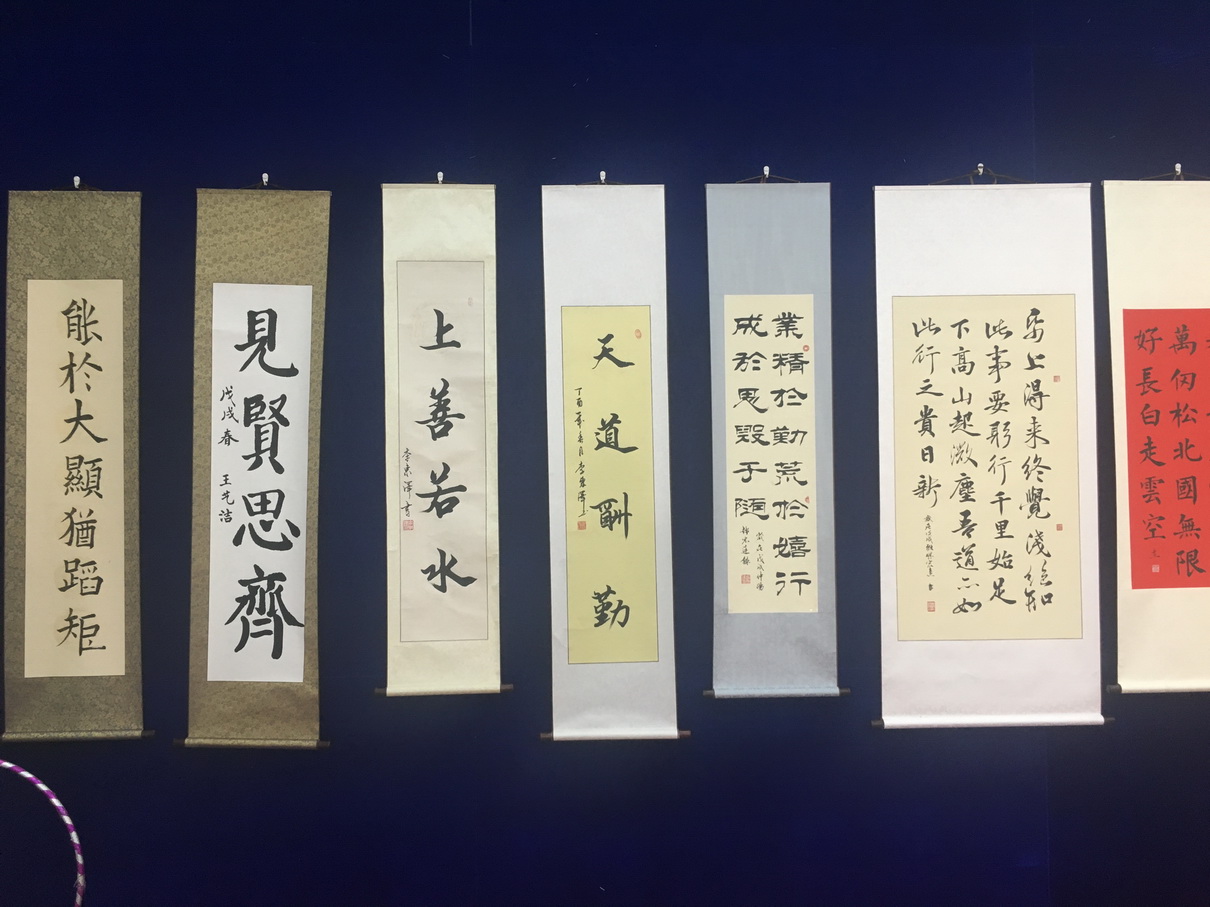 能於大顯猶蹈矩
見賢思齊
戊戌春 王洁
上善若水
李東澤書
天道酬勤
丁酉年
業精於勤荒於嬉行
成於思毀于隨
歲在戊戌仲
紙上得来终覺淺絶知
此事要躬行千里始足
下高山起微塵吾道亦如
此行之貴日新
萬仞松北國無限
好長白走雲空